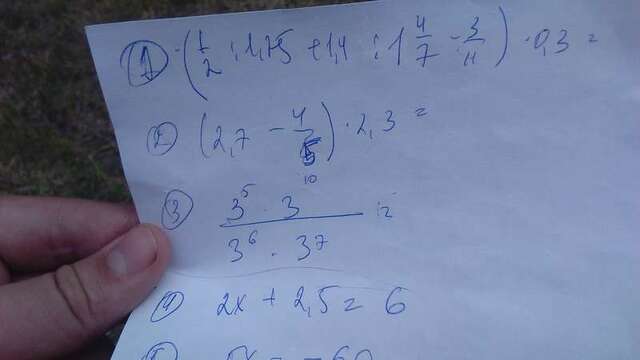 ① (1/2 : 1,75 + 1,4 : 1 4/7 - 3/11) · 0,3 =
② (2,7 - 4/5) · 2,3 =
③ 3⁵ · 3¹⁰ / 3⁶ · 3⁷ =
④ 2x + 2,5 = 6